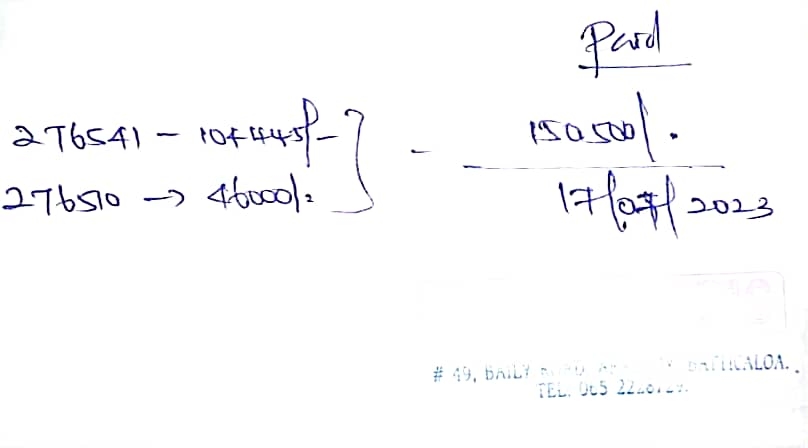 Paid
276541 - 104445/-
150500/.
276510 → 46000/=
17/07/2023
# 49, BAILY BATTICALOA.
TEL. 065